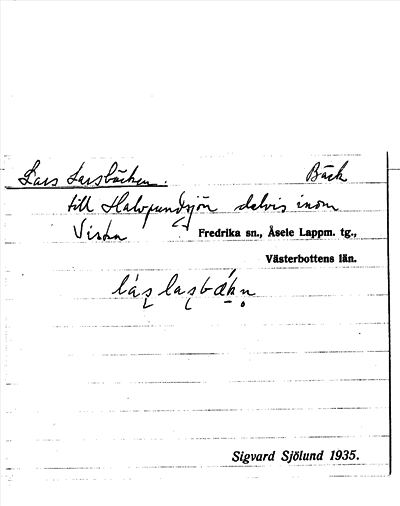 Lars Larsbäcken. Bäck
till Halvpundsjön delvis inom
Fredrika sn., Åsele Lappm. tg.,
Västerbottens län.
Sigvard Sjölund 1935.